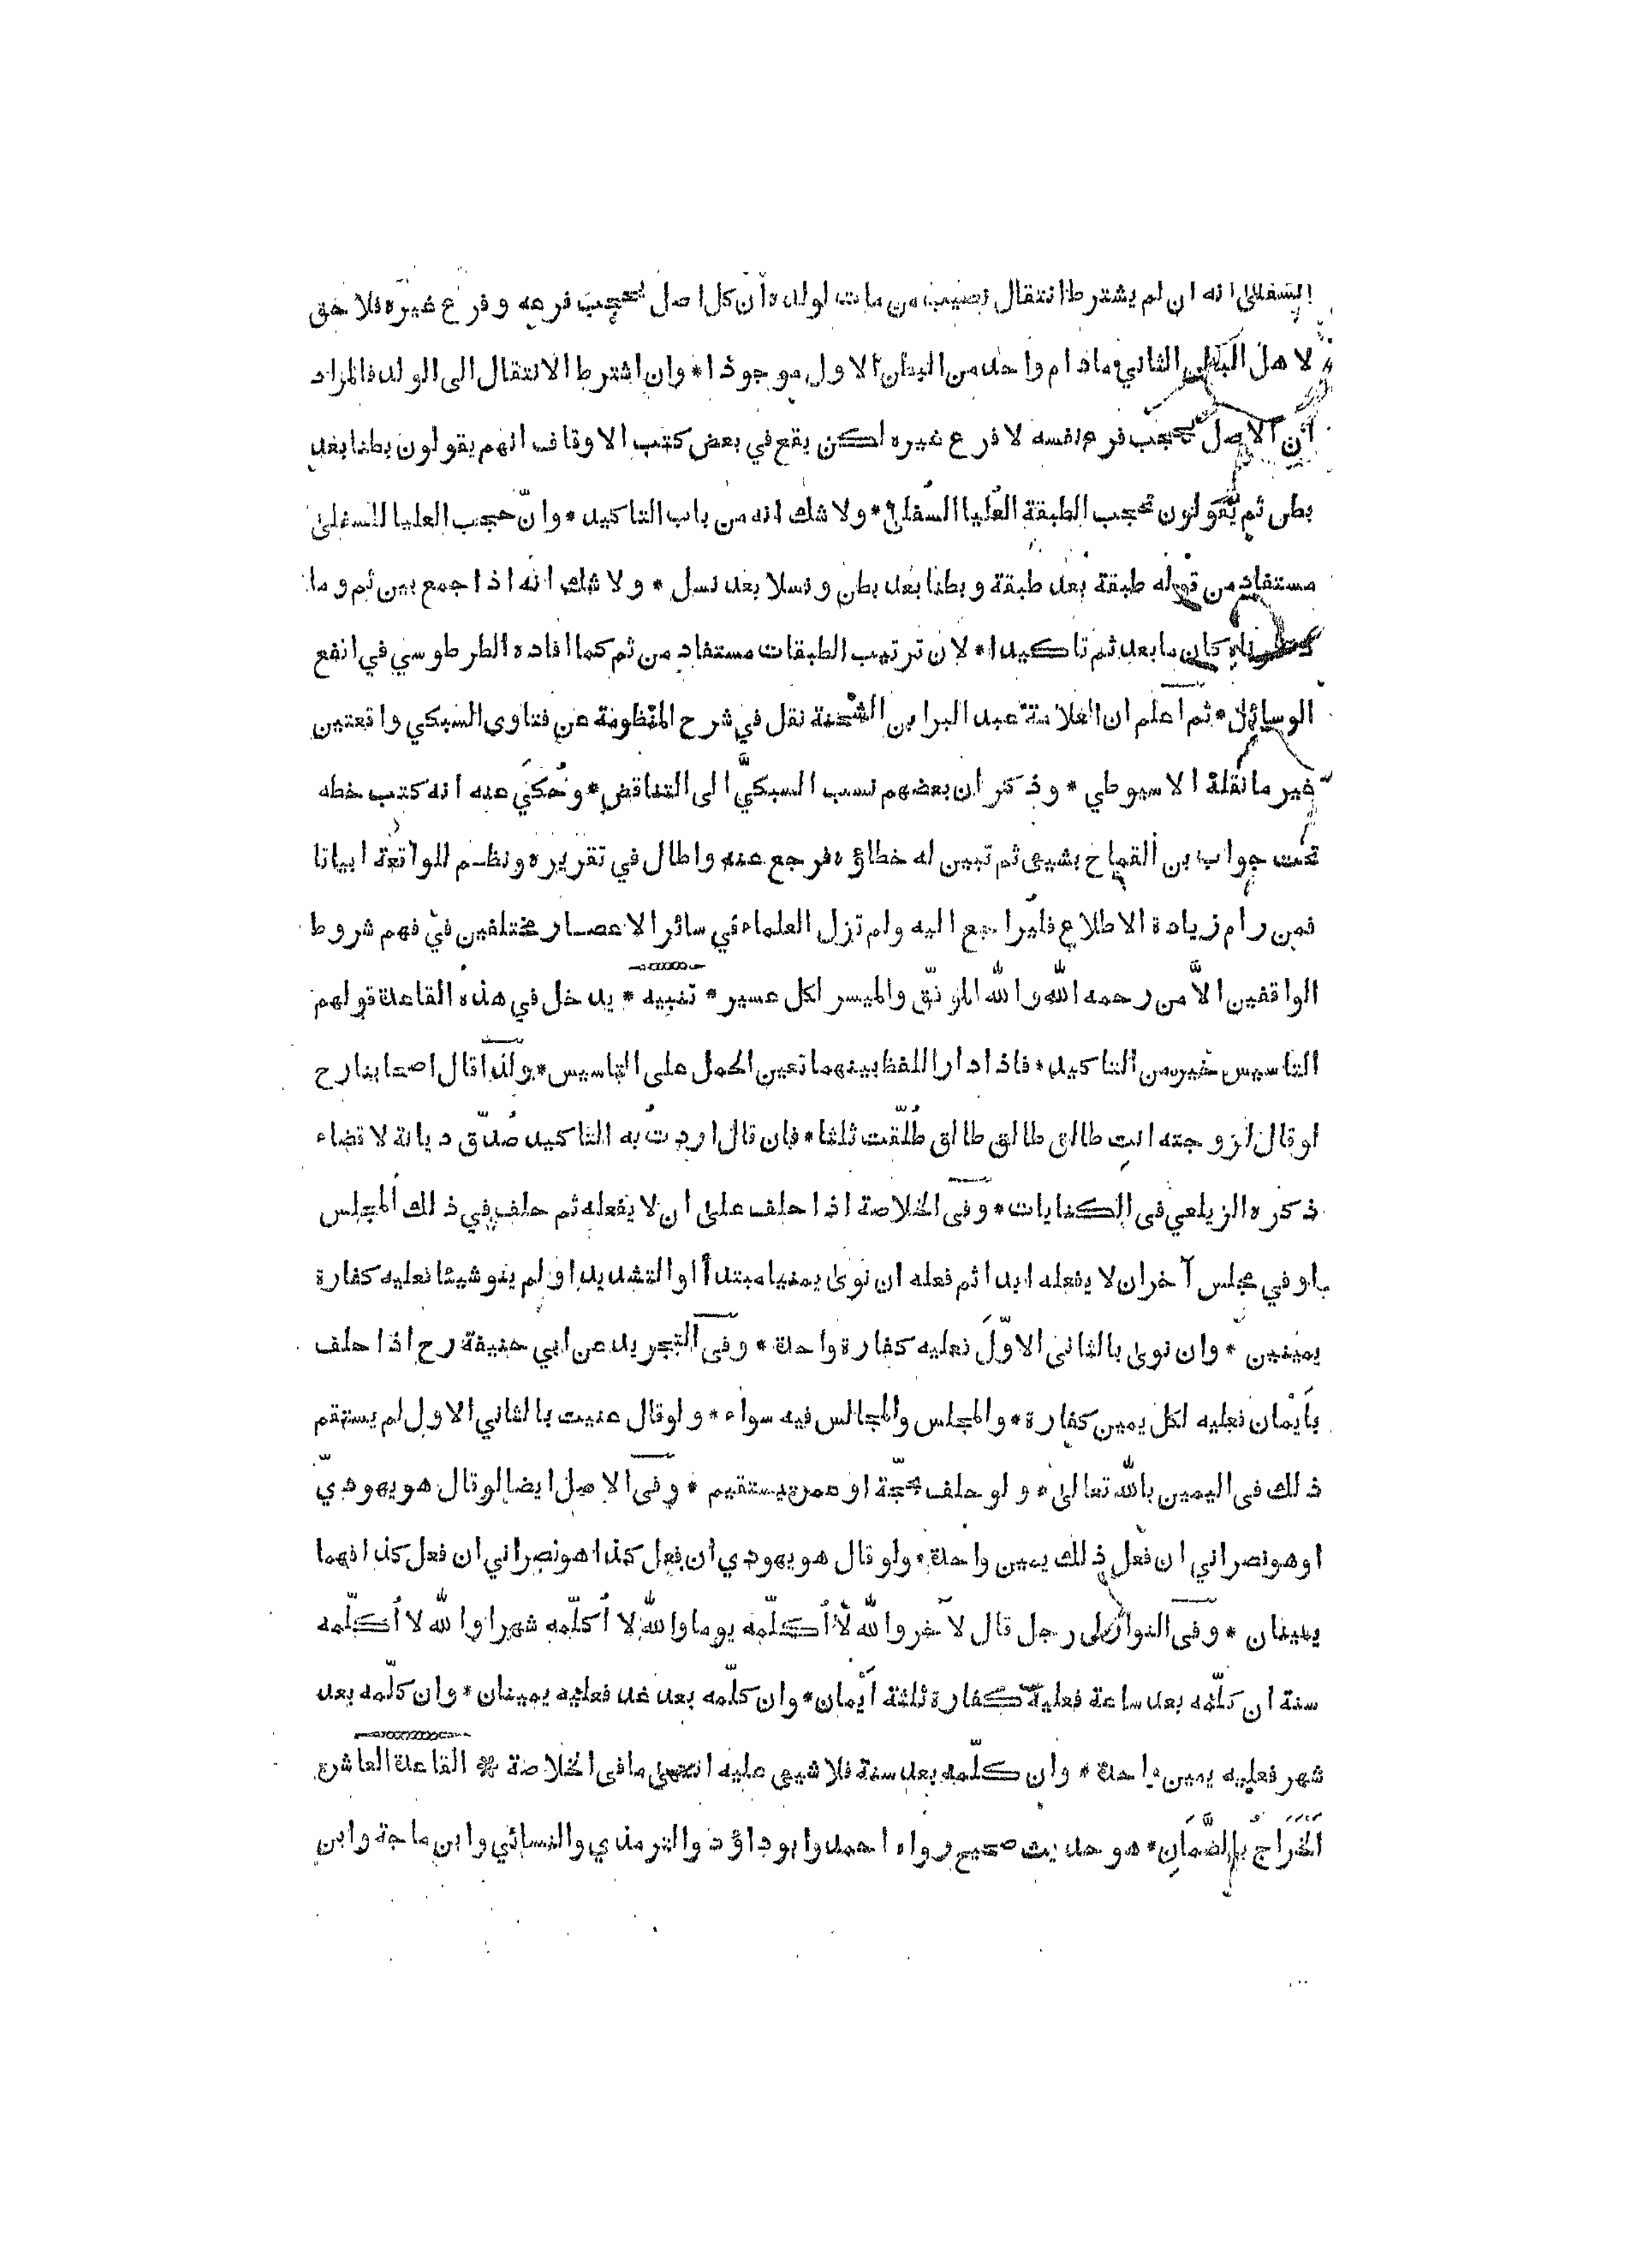 السفلى انه ان لم يشترط انتقال نصيب من مات لولده أن كل اصل يحجب فرعه و فرع غيره فلا حق
لا هل البطن الثاني ما دام واحد من البطن الاول موجودا * وان اشترط الانتقال الى الولد فالمراد
أن الاصل يحجب فرع نفسه لا فرع غيره لكن يقع في بعض كتب الاوقاف انهم يقولون بطنا بعد
بطن ثم يقولون تحجب الطبقة العليا السفلى * ولا شك انه من باب التاكيد * وانّ حجب العليا للسفلى
مستفاد من قوله طبقة بعد طبقة و بطنا بعد بطن ونسلا بعد نسل * ولا شك انه اذا جمع بين ثم وما
كان ما بعد ثم تاكيدا * لان ترتيب الطبقات مستفاد من ثم كما افاده الطرطوسي في انفع
الوسائل * ثم اعلم ان العلامة عبد البر ابن الشحنة نقل في شرح المنظومة عن فتاوى السبكي واقعتين
غير ما نقله الاسيوطي * وذكر ان بعضهم نسب السبكيّ الى التناقض * وحُكي عنه انه كتب خطه
تحت جواب بن القماح بشيى ثم تبين له خطاؤه فرجع عنه واطال في تقريره ونظم للواقعة ابياتا
فمن رام زيادة الاطلاع فليراجع اليه ولم تزل العلماء في سائر الاعصار مختلفين في فهم شروط
الواقفين الاّ من رحمه اللّه واللّه الموفّق والميسر لكل عسير * تنبيه * يدخل في هذه القاعدة قولهم
التاسيس خير من التاكيد * فاذا دار اللفظ بينهما تعين الحمل على التاسيس * ولذا قال اصحابنا رح
لو قال لزوجته انت طالق طالق طالق طُلّقت ثلثا * فان قال اردتُ به التاكيد صُدّق ديانة لا قضاء
ذكره الزيلعي فى الكنايات * وفى الخلاصة اذا حلف على ان لا يفعله ثم حلف في ذلك المجلس
او في مجلس آخر ان لا يفعله ابدا ثم فعله ان نوى يمينا مبتدأ او التشديد او لم ينو شيئا فعليه كفارة
يمينين * وان نوى بالثانى الاوّل فعليه كفارة واحدة * وفى التجريد عن ابي حنيفة رح اذا حلف
بأيْمان فعليه لكل يمين كفارة * والمجلس والمجالس فيه سواء * ولو قال عنيت بالثاني الاول لم يستقم
ذلك فى اليمين باللّه تعالى * ولو حلف بحجّة او عمرة يستقيم * وفى الاصل ايضا لو قال هو يهوديّ
او هو نصراني ان فعل ذلك يمين واحدة * ولو قال هو يهودي ان فعل كذا هو نصراني ان فعل كذا فهما
يمينان * وفى النوازل رجل قال لآخر واللّه لا أكلّمه يوما واللّه لا أكلّمه شهرا واللّه لا أكلّمه
سنة ان كلّمه بعد ساعة فعليه كفارة ثلثة أيْمان * وان كلّمه بعد غد فعليه يمينان * وان كلّمه بعد
شهر فعليه يمين واحدة * وان كلّمه بعد سنة فلا شيى عليه انتهى ما فى الخلاصة * القاعدة العاشرة
الخَرَاجُ بالضَّمَانِ * هو حديث صحيح رواه احمد وابو داؤد والترمذي والنسائي وابن ماجة وابن